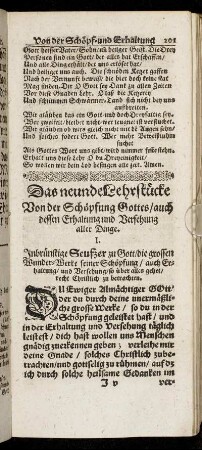 Von der Schöpf- und Erhaltung 201
Gott heisset Vater/ Sohn und heiliger Geist. Die Drey
Personen sind ein Gott/ der alles hat Erschaffen/
Und alle Ding erhält/ der uns erlöset hat/
Und heiliget uns auch. Die schnöden Ketzer gaffen
Nach der Vernunft beweiß/ die hier doch keine stat
Mag finden. Dir O Gott sey Danck zu allen Zeiten
Vor diese Gnaden Lehr. O laß die Ketzerey
Und schlimmen Schwärmer-Tand sich nicht bey uns
außbreiten.
Wir gläuben daß ein Gott und doch Drey faltig sey.
Wer zweifelt/ bleibt nicht wer tausend voll verstunde.
Wir gläuben ob wirs gleich nicht mit de Augen sehn/
Und forschen fodert Gott. Wer mehr Beweißthum
sucht
Als Gottes Wort uns gibt/ wird nimmer feste stehn.
Erhalt uns dese Lehr O du Dreyeinigkeit/
So wollen wir dein Lob besingen alle zeit. Amen.
Das neunde Lehrstücke
Von der Schöpfung Gottes/ auch
dessen Erhaltung und Versehung
aller Dinge.
I.
Inbrünstige Seufzer zu Gott/ die grossen
Wunder-Werke seiner Schöpfung/ auch Er-
haltung/ und Versehung/ so über alles gehet/
recht Christlich zu betrachten.
DU Ewiger Almächtiger GOtt/
der du durch deine unermäßli-
che grosse Werke/ so du in der
Schöpfung geleistet hast/ und
in der Erhaltung und Versehung täglich
leistest/ dich hast wollen uns Menschen
gnädig zu erkennen geben; verleihe mir
deine Gnade/ solches Christlich zube-
trachten/ und gottselig zu rühmen/ auf dz
ich durch solche heilsame Gedanken im
J v ver-